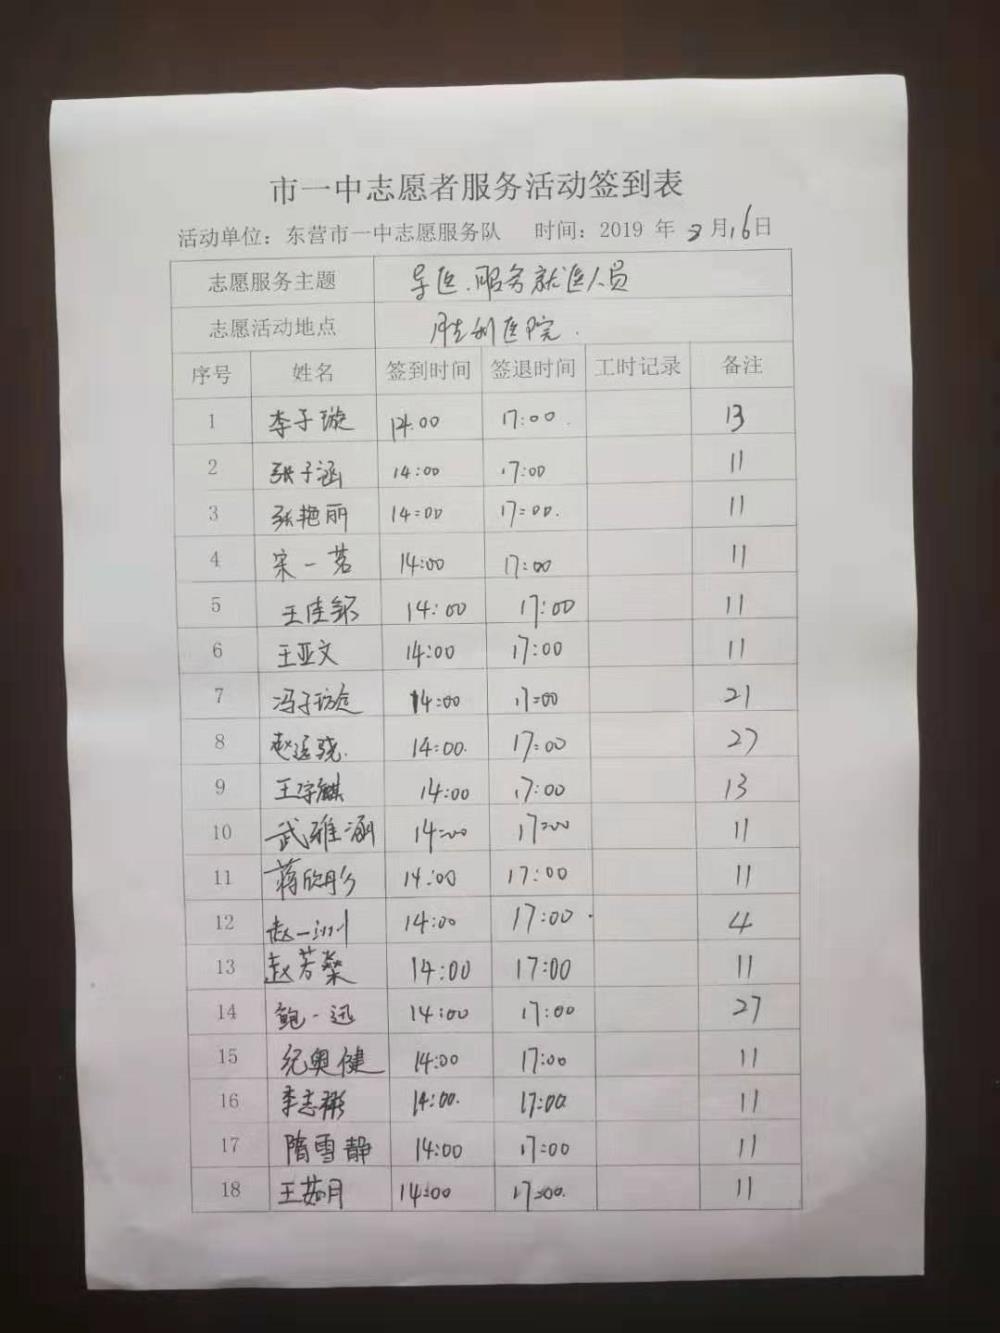 市一中志愿者服务活动签到表
活动单位：东营市一中志愿服务队 时间：2019 年 3 月 16 日
志愿服务主题 导医.服务就医人员
志愿活动地点 胜利医院.
序号 姓名 签到时间 签退时间 工时记录 备注
1 李子璇 14:00 17:00. 13
2 张子涵 14:00 17:00 11
3 张艳丽 14:00 17:00. 11
4 宋一茗 14:00 17:00 11
5 王佳 14:00 17:00 11
6 王亚文 14:00 17:00 11
7 冯子 14:00 17:00 21
8 赵 14:00. 17:00 27
9 王宇麒 14:00 17:00 13
10 武雅涵 14:00 17:00 11
11 蒋欣彤 14:00 17:00 11
12 赵一洲 14:00 17:00. 4
13 赵芳燊 14:00 17:00 11
14 鲍一迅 14:00 17:00 27
15 纪奥健 14:00 17:00 11
16 李志彬 14:00. 17:00 11
17 隋雪静 14:00 17:00 11
18 王茹月 14:00 17:00. 11